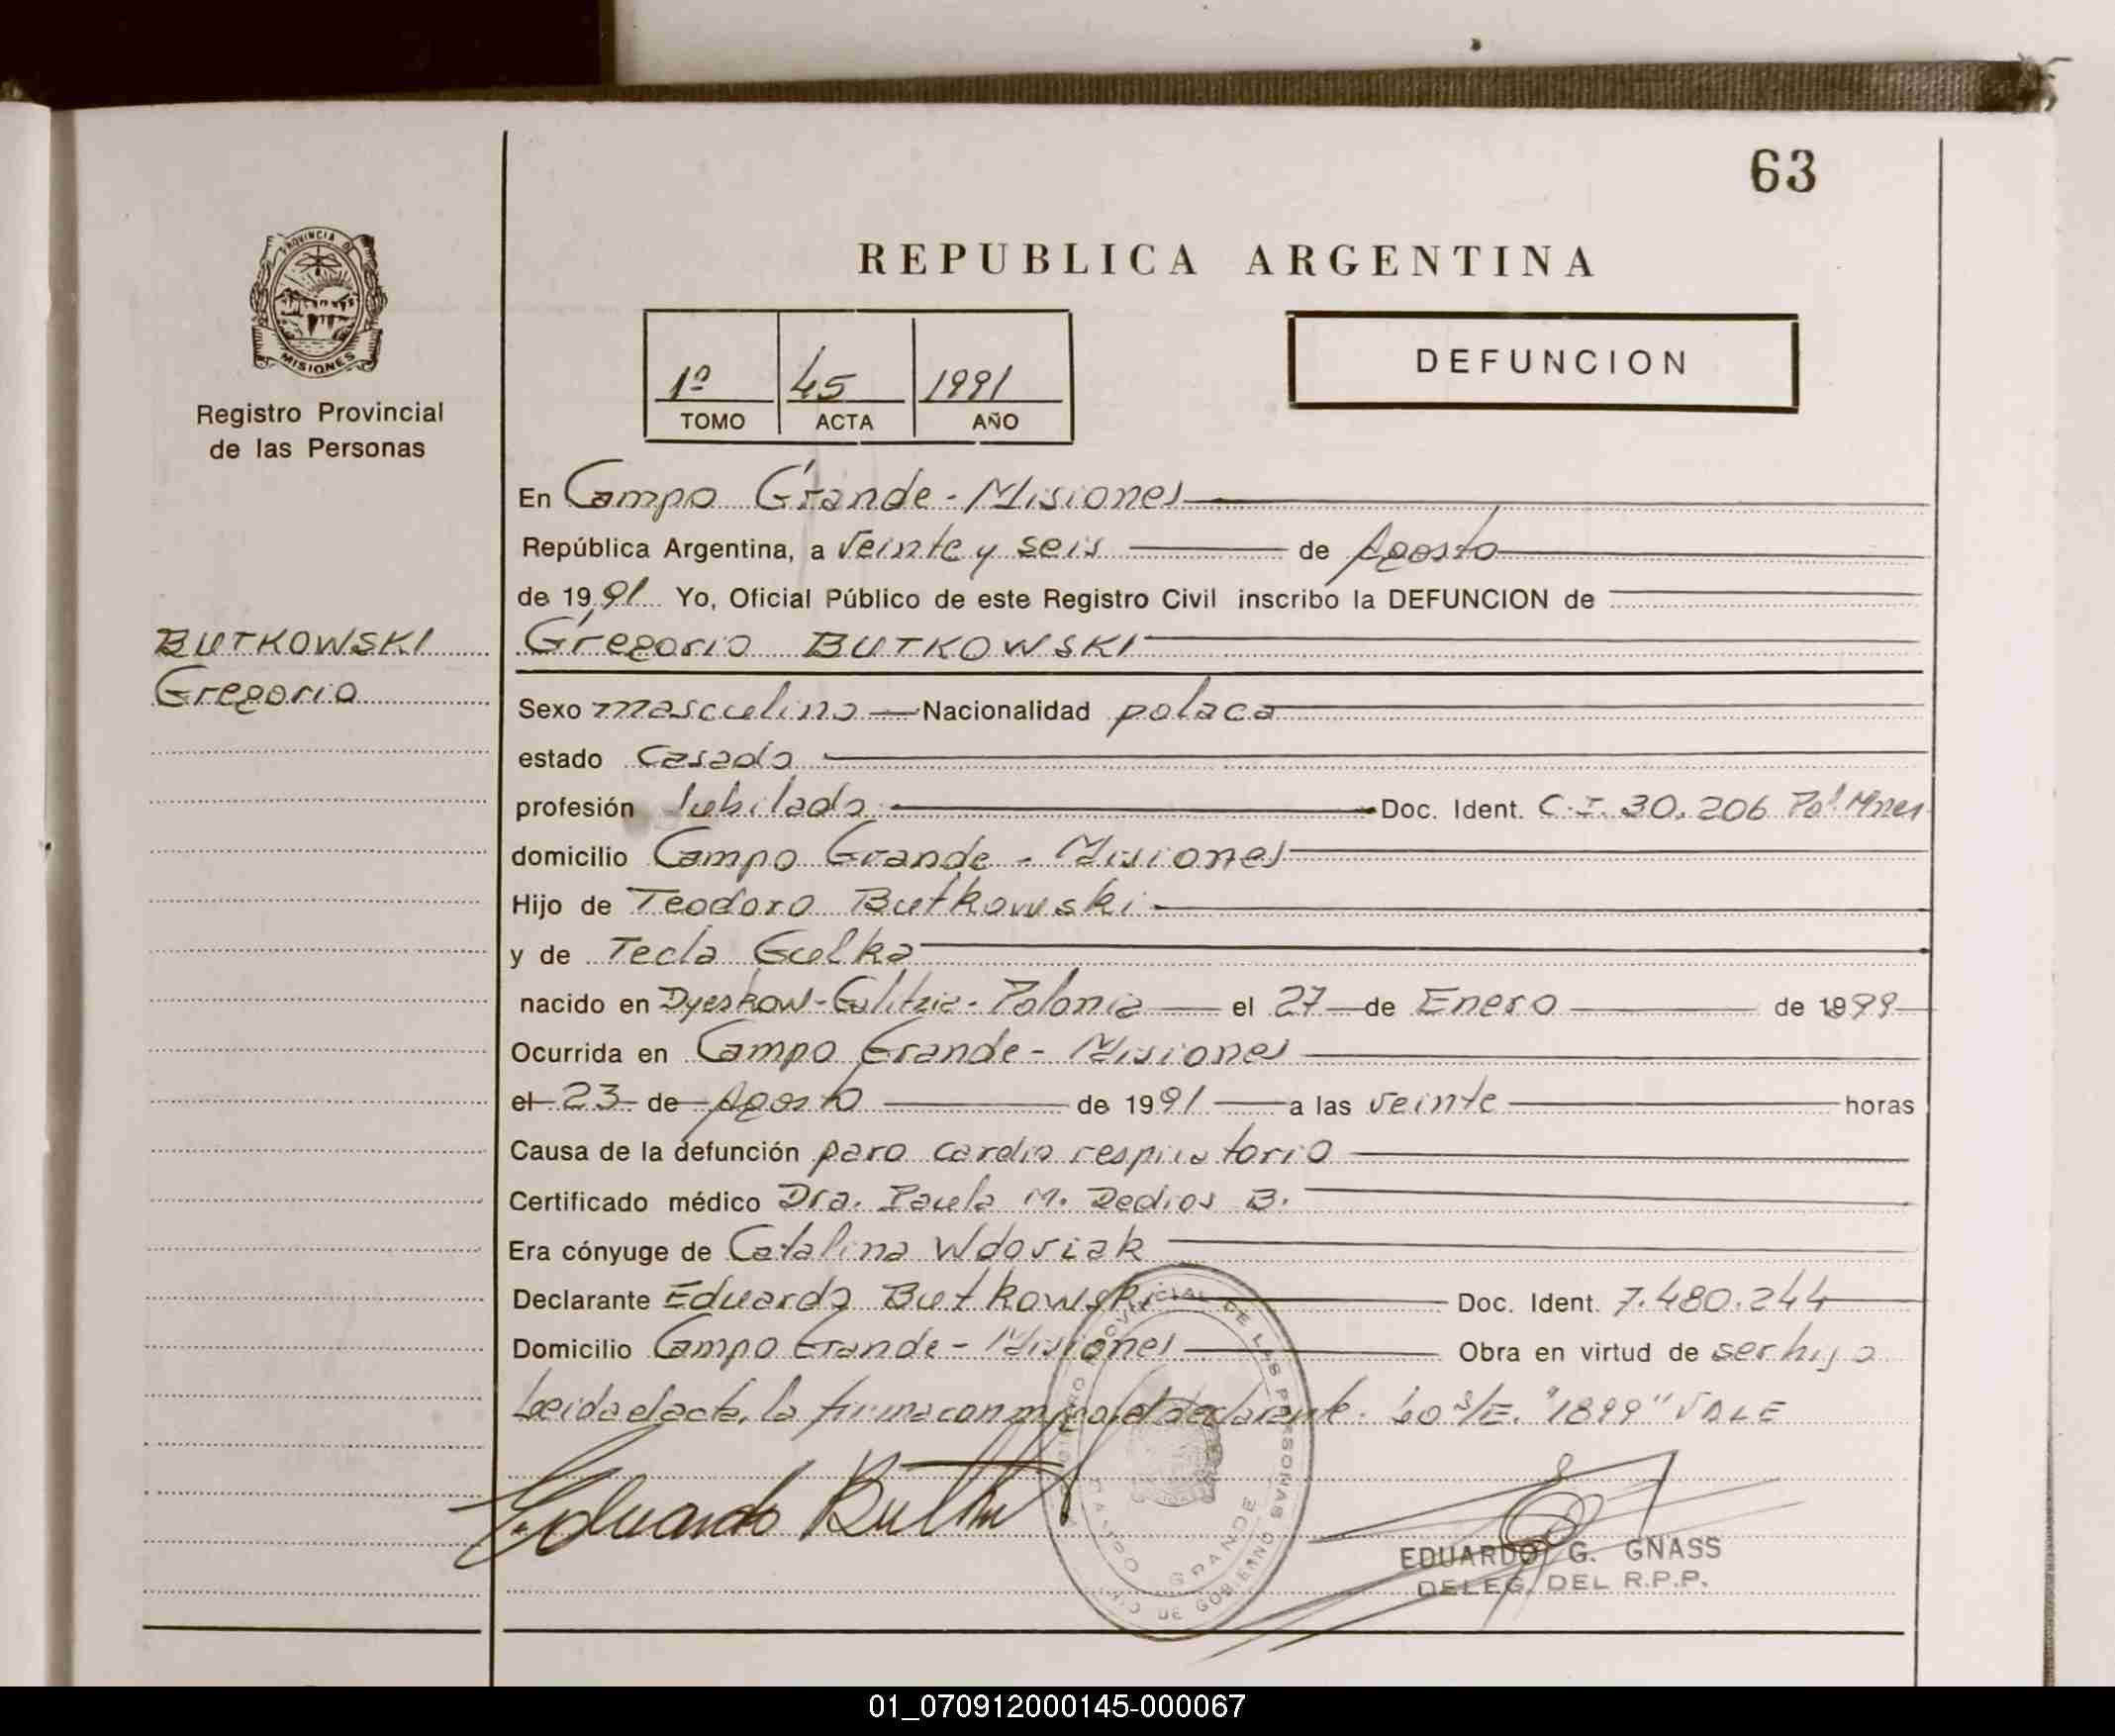 63
PROVINCIA DE
MISIONES
Registro Provincial
de las Personas
REPUBLICA ARGENTINA
1º 45 1991
TOMO ACTA AÑO
DEFUNCION
En Campo Grande - Misiones
República Argentina, a veinte y seis de Agosto
de 1991 Yo, Oficial Público de este Registro Civil inscribo la DEFUNCION de
BUTKOWSKI
Gregorio
Gregorio BUTKOWSKI
Sexo masculino Nacionalidad polaca
estado casado
profesión Jubilado Doc. Ident. C.I. 30.206 Pol. Mnes
domicilio Campo Grande - Misiones
Hijo de Teodoro Butkowski
y de Tecla Gulka
nacido en Dyeskow - Galitzia - Polonia el 27 de Enero de 1899
Ocurrida en Campo Grande - Misiones
el 23 de Agosto de 1991 a las veinte horas
Causa de la defunción paro cardio respiratorio
Certificado médico Dra. Paula M. Dedios B.
Era cónyuge de Catalina Wdoviak
Declarante Eduardo Butkowski Doc. Ident. 7.480.244
Domicilio Campo Grande - Misiones Obra en virtud de ser hijo
Leida el acta, la firma conmigo el declarante. S/E. "1899" VALE
Eduardo
REGISTRO PROVINCIAL DE LAS PERSONAS
CAMPO GRANDE
DE GOBIERNO
EDUARDO G. GNASS
DELEG. DEL R.P.P.
01_070912000145-000067